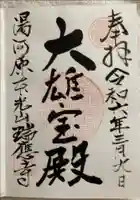 奉拝 令和六年三月九日
大雄宝殿
湯河原 天光山 瑞應寺